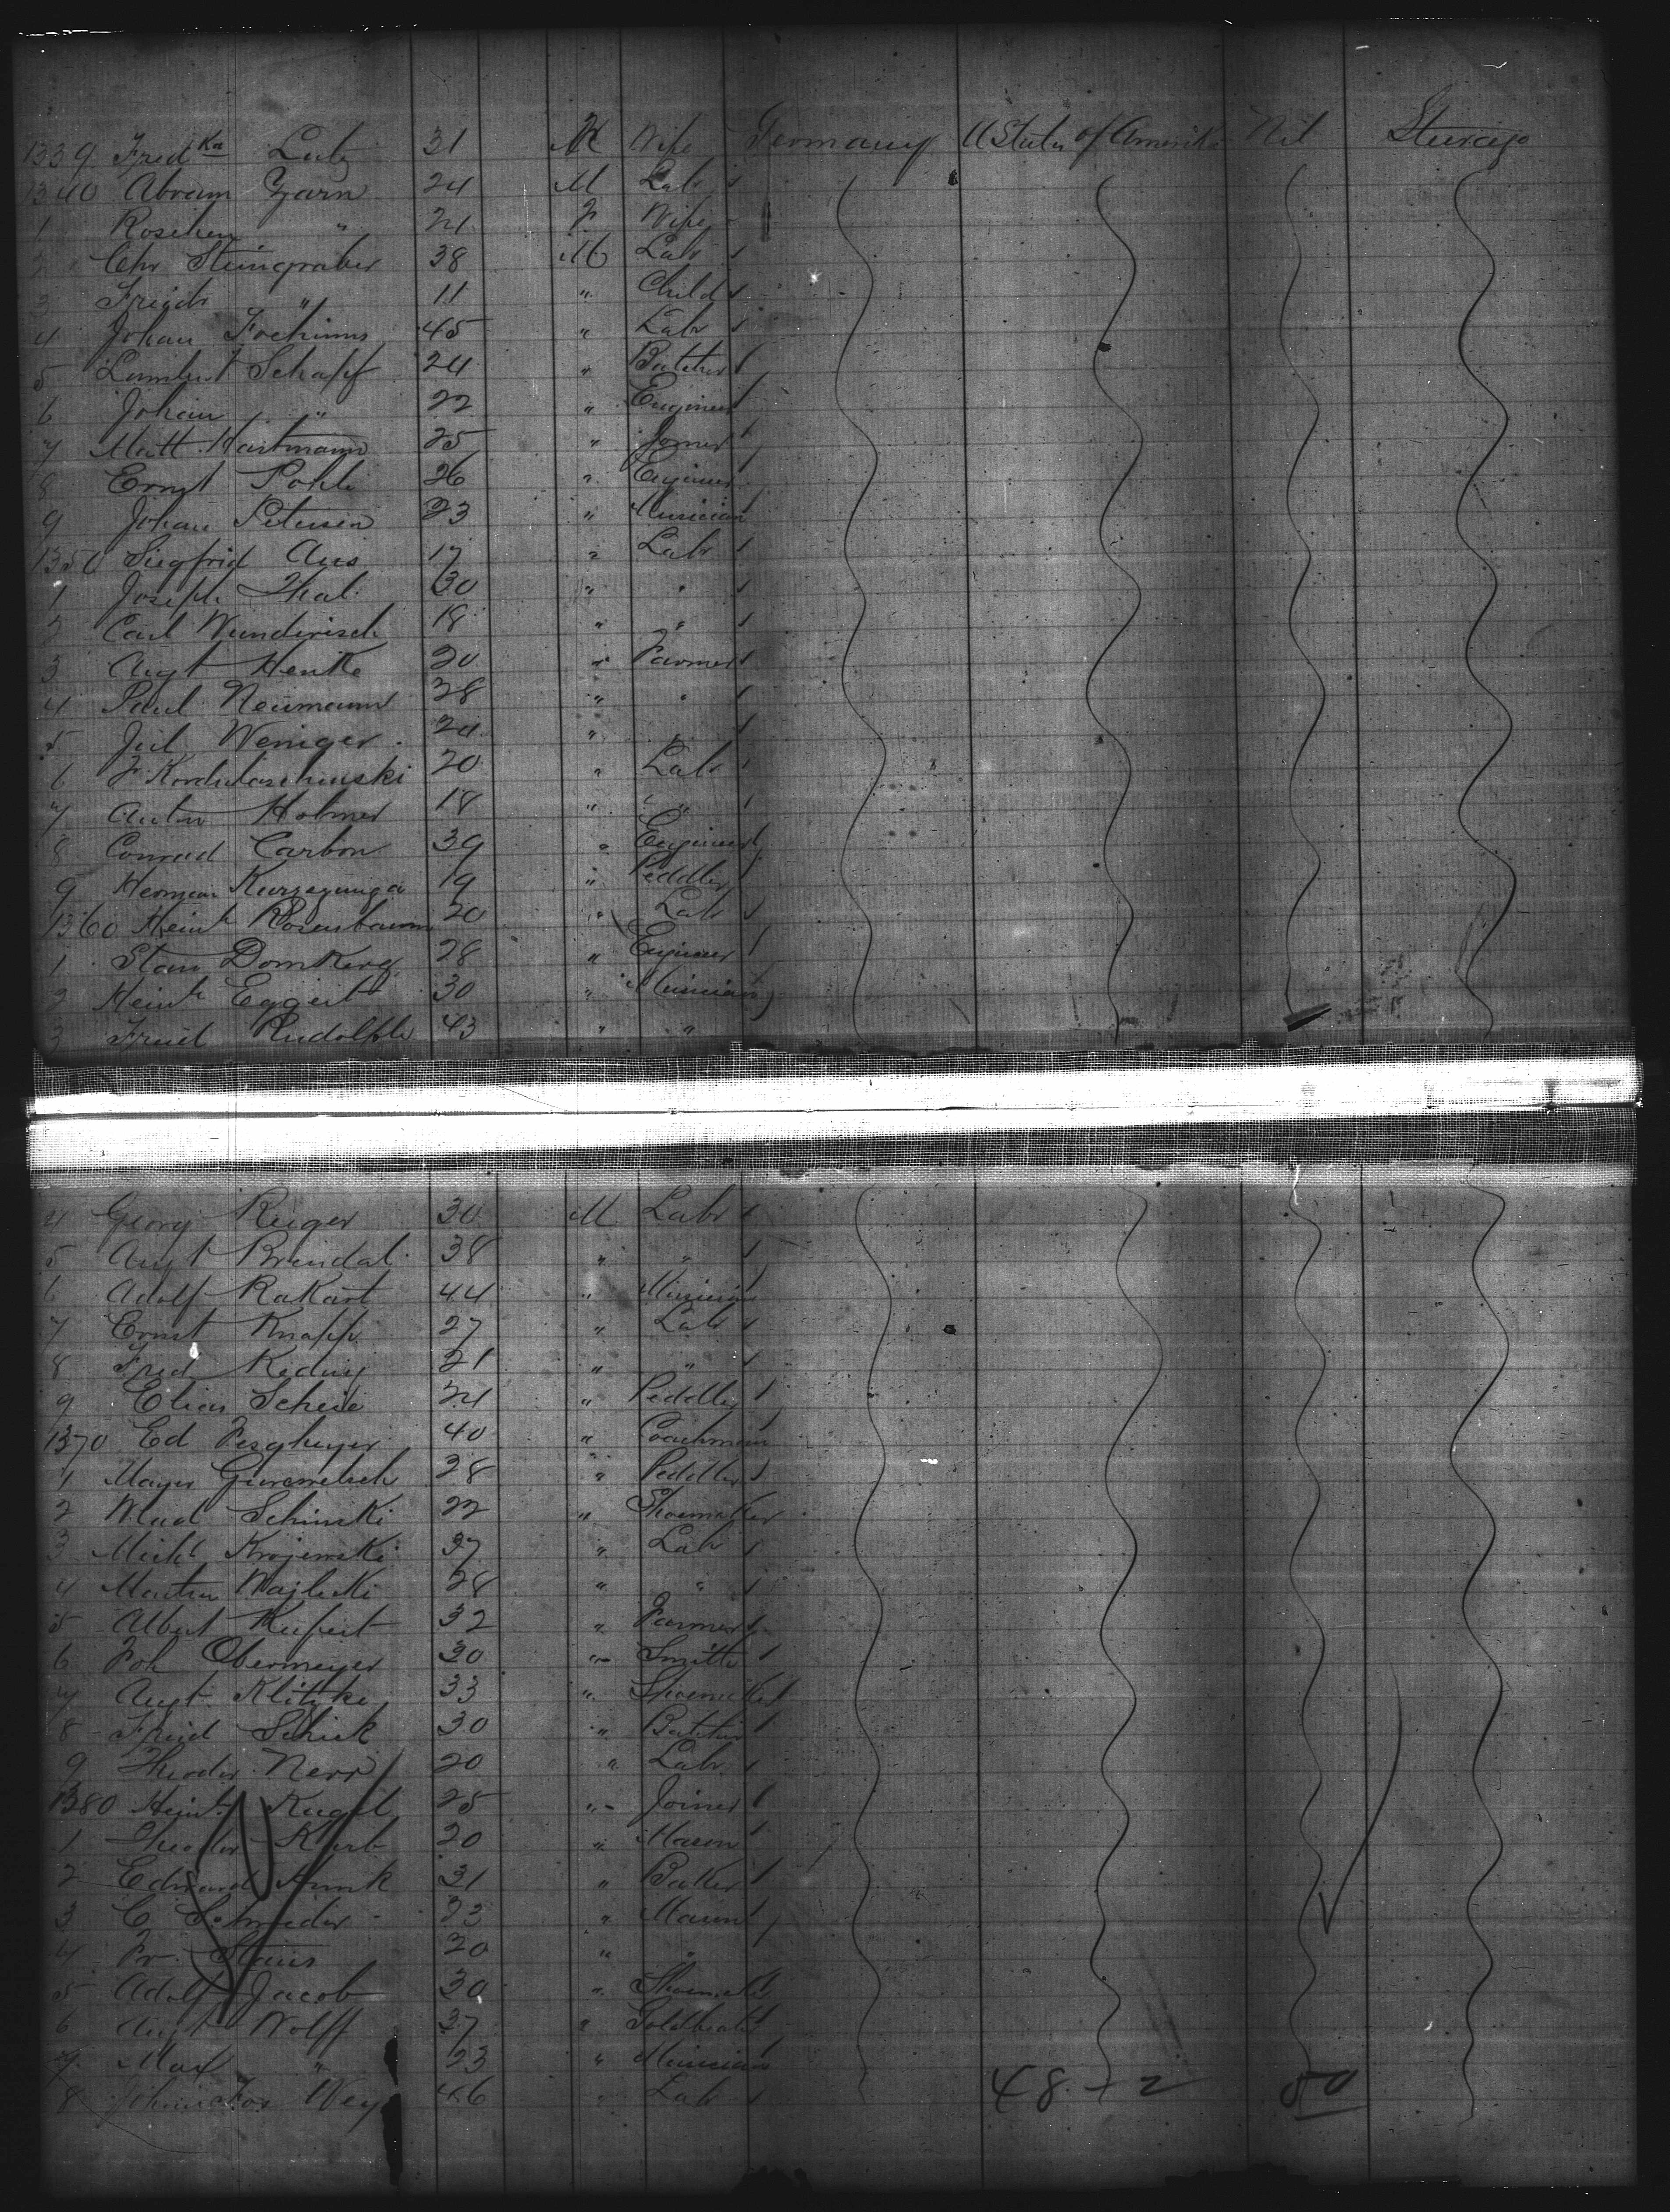 1339 Fred ka Lutz 31 Wife Germany U States of Amerika Nil Sturaige
1340 Abram Zarn 24 M Labr
1 Roschen " 21 F Wife
Chr Steingraber 38 M Labr
3 Friedr " 11 " Child
4 Johan Jochims 45 " Labr
5 Lambert Schapf 24 " Butcher
6 Johan " 22 " Engineer
7 Matt Hartmann 25 " Joiner
8 Ernst Pohle 26 " Engineer
9 Johan Petersen 23 " Musician
1350 Siegfrid Aus 17 " Labr
1 Joseph Thal 30 " "
2 Carl Wunderisch 18 " "
3 Augt Henke 20 " Farmer
4 Paul Neumann 28 " "
5 Jul Weniger 24 " "
6 F 20 " Labr
7 Anton Holmer 18 " "
8 Conrad Carbon 39 " Engineer
9 Herman 19 " Peddler
1360 Heinh Rosenbaum 20 " Labr
1 Stan Domkerg 28 " Engineer
2 Heinh Eggert 30 " Musician
3 Fried Rudolph 43 " "
4 Georg Reiger 30 M Labr
5 Augt Brendal 38 " "
6 Adolf Rakart 44 " Musician
7 Ernst Knapp 27 " Labr
8 Fred Keding 21 " "
9 Elias Scheie 24 " Peddler
1370 Ed 40 " Coachman
1 Mayer 28 " Peddler
2 Wlad Schinski 22 " Shoemaker
3 Michl Krajewski 37 " Labr
4 Martin Wajlicki 28 " "
5 Albert Kufert 32 " Farmer
6 Joh Obermeyer 30 " Smith
7 Augt Klitzke 33 " Shoemaker
8 Fried Schick 30 " Butcher
9 Theodor Nerr 20 " Labr
1380 Heinh Kugel 25 " Joiner
1 Theodor Korb 20 " Mason
2 Edward Munk 31 " Baker
3 C Schneider 23 " Mason
4 Fr Staus 20 " "
5 Adolf Jacob 30 " Shoemaker
6 Augt Wolff 37 "
7 Max " 23 " Musician
8 Wey 46 " Labr
48 + 2 50